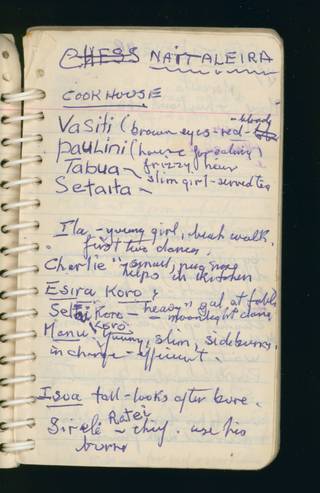 CHESS NAITALEIRA
COOKHOUSE
- bloody
Vasiti (brown eyes - red -
Paulini (house for eating)
Tabua - frizzy hair
Setaita - slim girl - served tea
Ila, - young girl, beach walk,
first two dances.
Charlie - small, pug nose
helps in kitchen
Esira Koro,
Koro - "heavy" gal at table
- moonlight dance
Koro
Manu - young, slim, sideburns,
in charge - efficient.
Isoa tall - looks after bure.
Ratei
- chief. use his
burre